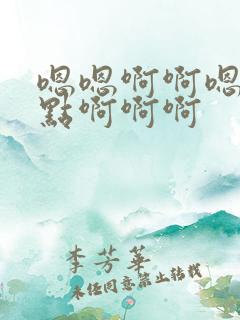 嗯嗯啊啊嗯
點啊啊啊
李芳華
未经同意禁止转载